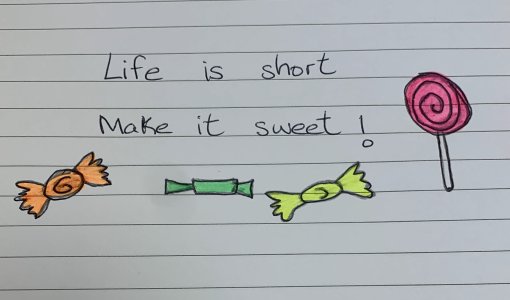 Life is short
Make it sweet!